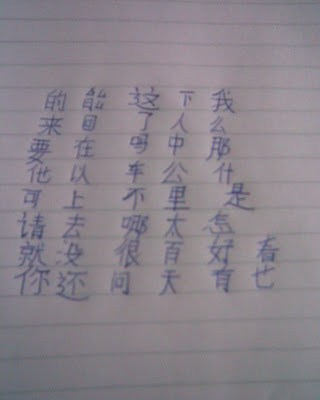 的 能 这 下 我
来 回 了 人 么
要 在 吗 中 那
他 以 车 公 什
可 上 不 里 是
请 去 哪 太 怎
就 没 很 百 好 看
你 还 问 天 有 也